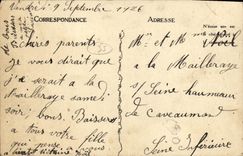 Vendredi 9 Septembre 1926
CORRESPONDANCE
ADRESSE
Chers parents
Je vous dirait que
je serait a la
Mailleraye samedi
soir, bons Baisers
a tous votre fille
qui pense a vous
Mr et Me Noël
a la Mailleraye
s/ Seine hameau
de Caveaumont
Seine Inférieure